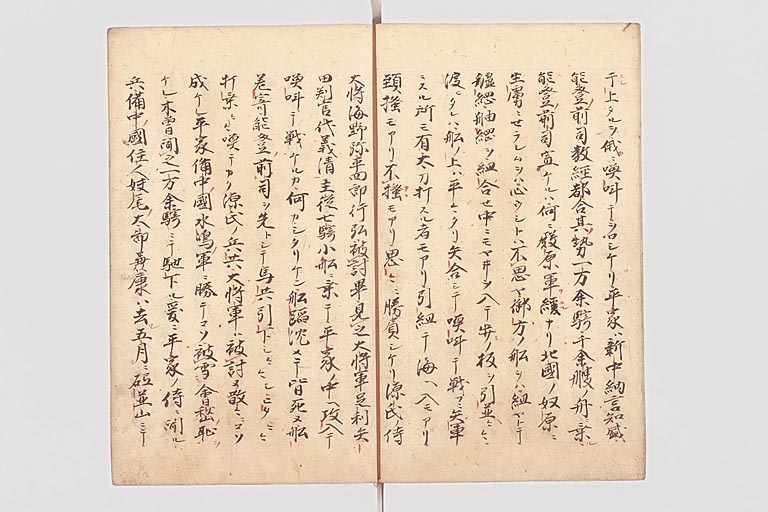 テ上クルヲ俄ニ喚叫テヨロシケリ平家ハ新中納言知盛
能登前司教経都合其勢一万余騎千余艘ノ舟ニ乗ル
能登前司宣ケルハ何ニ殿原軍緩ナリ北国ノ奴原ニ
生虜ニセラレムヲハ心ウシトハ不思ヤ御方ノ船ヲハ組ヤトテ
艫綱舳綱ヲ組合セ中ニモヤヰヲ入テ歩ノ板ヲ引並ヘ
渡シタレハ船ノ上ハ平々タリ矢合シテ喚叫テ戦フ矢軍
スル所モ有太刀打スル者モアリ引組テ海ヘ入モアリ
頸捕モアリ不捕モアリ思々ニ勝負シケリ源氏ノ侍
大将海野弥平四郎行弘被討畢見之大将軍足利矢
田判官代義清主従七騎小船ニ乗テ平家ノ中ヘ攻入テ
喚叫テ戦ケルカ何カシタリケン船踏沈メテ皆死ヌ船
差寄能登前司ヲ先トシテ馬共引下シ
打乗々々喚テカク源氏ノ兵共大将軍ハ被討ヌ散々ニコソ
成ケレ平家備中国水嶋軍ニ勝テコソ被雪会稽恥
ケレ木曽聞之一万余騎ニテ馳下ル爰ニ平家ノ侍ニ聞ル
兵備中国住人妹尾太郎兼康ハ去五月ニ砥並山ニテ